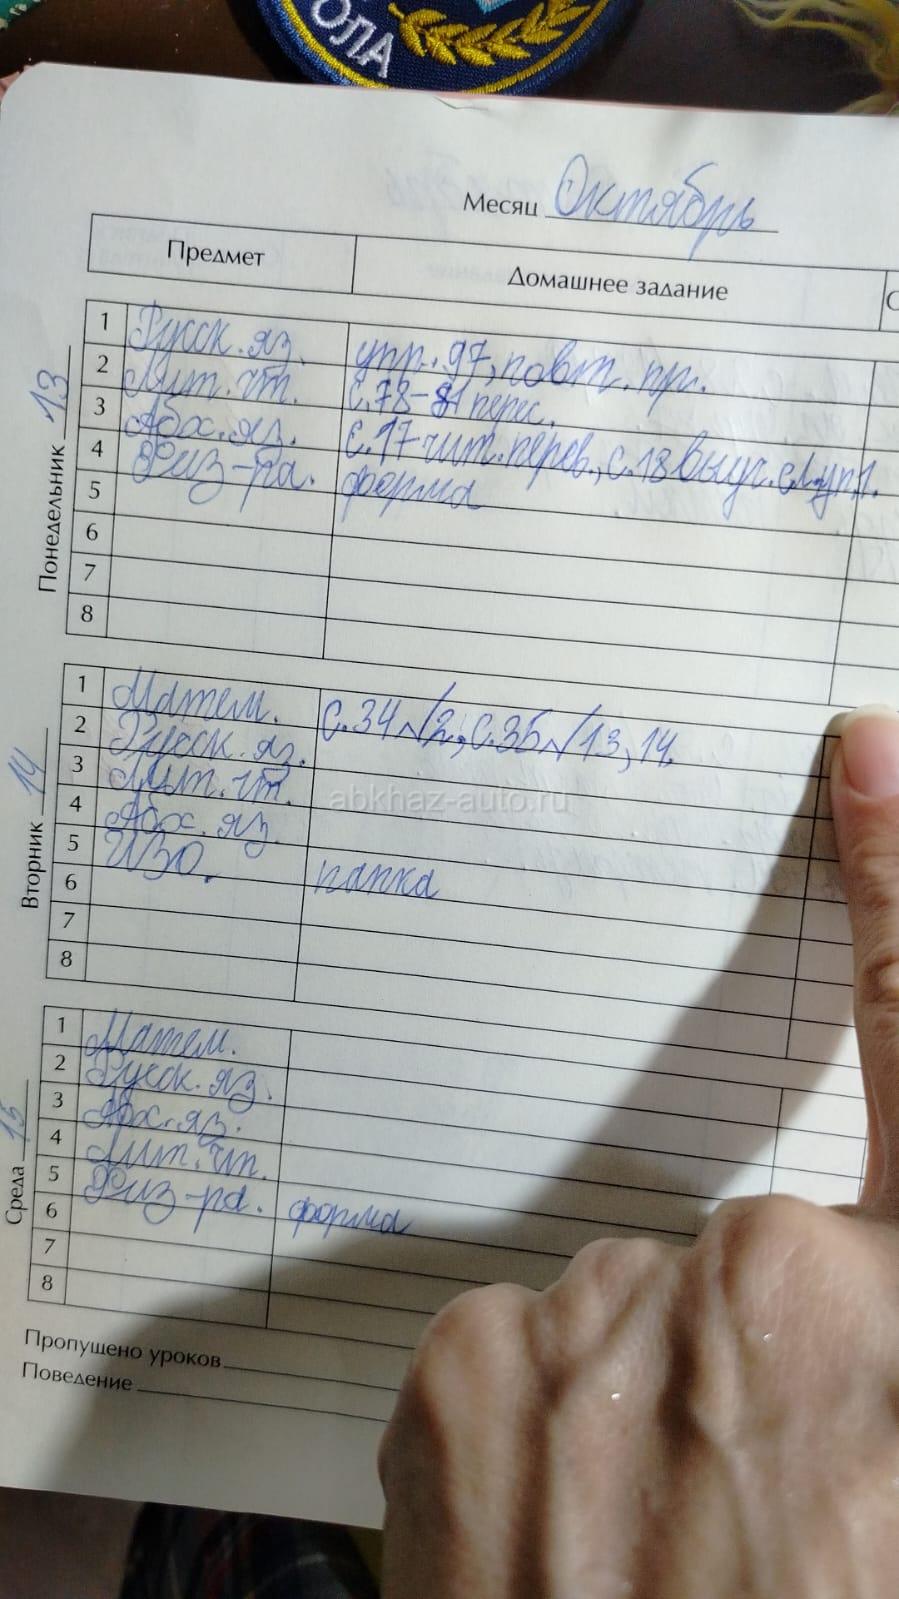 ОЛА
Месяц Октябрь
Предмет Домашнее задание
Понедельник 13
1 Русск. яз. упр. 97, повт. пр.
2 Лит. чт. с. 78-81 перес.
3 Абх. яз. с. 17-чит. перев., с. 18 выуч. сл. уп. 1.
4 Физ-ра. форма
5
6
7
8
Вторник 14
1 Матем. с. 34 №2, с. 35 №13, 14.
2 Русск. яз.
3 Лит. чт.
abkhaz-auto.ru
4 Абх. яз.
5 ИЗО. папка
6
7
8
Среда 15
1 Матем.
2 Русск. яз.
3 Абх. яз.
4 Лит. чт.
5 Физ-ра. форма
6
7
8
Пропущено уроков
Поведение